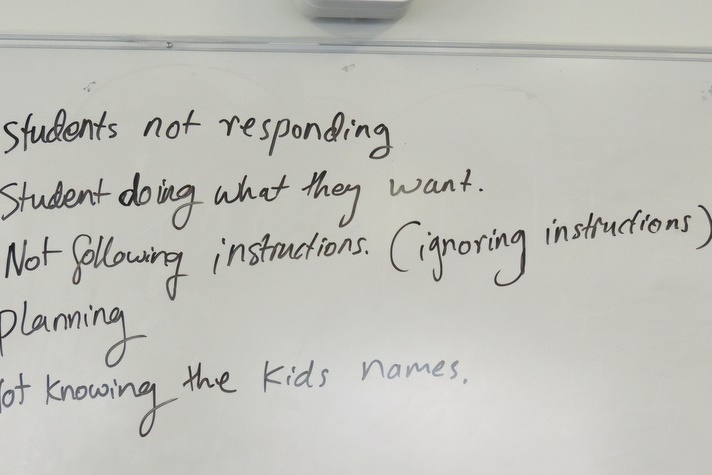 Students not responding
Student doing what they want.
Not following instructions. (ignoring instructions)
Planning
ot knowing the kids names.